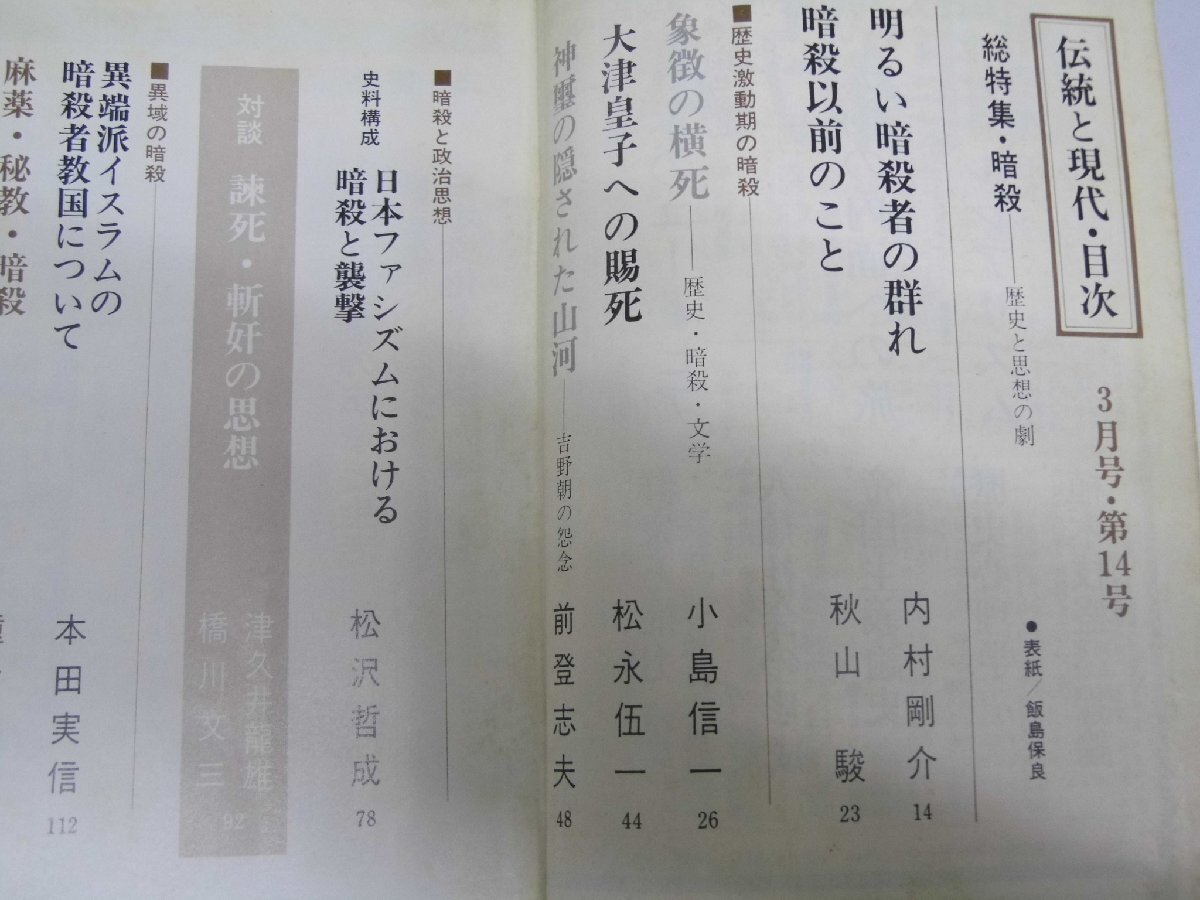 伝統と現代・目次
3月号・第14号
●表紙/飯島保良
総特集・暗殺──歴史と思想の劇
明るい暗殺者の群れ 内村剛介 14
暗殺以前のこと 秋山駿 23
■歴史激動期の暗殺
象徴の横死──歴史・暗殺・文学 小島信一 26
大津皇子への賜死 松永伍一 44
神璽の隠された山河──吉野朝の怨念 前登志夫 48
■暗殺と政治思想
史料構成 日本ファシズムにおける
暗殺と襲撃 松沢哲成 78
対談 諫死・斬奸の思想 津久井龍雄
橋川文三 92
■異域の暗殺
異端派イスラムの
暗殺者教国について 本田実信 112
麻薬・秘教・暗殺